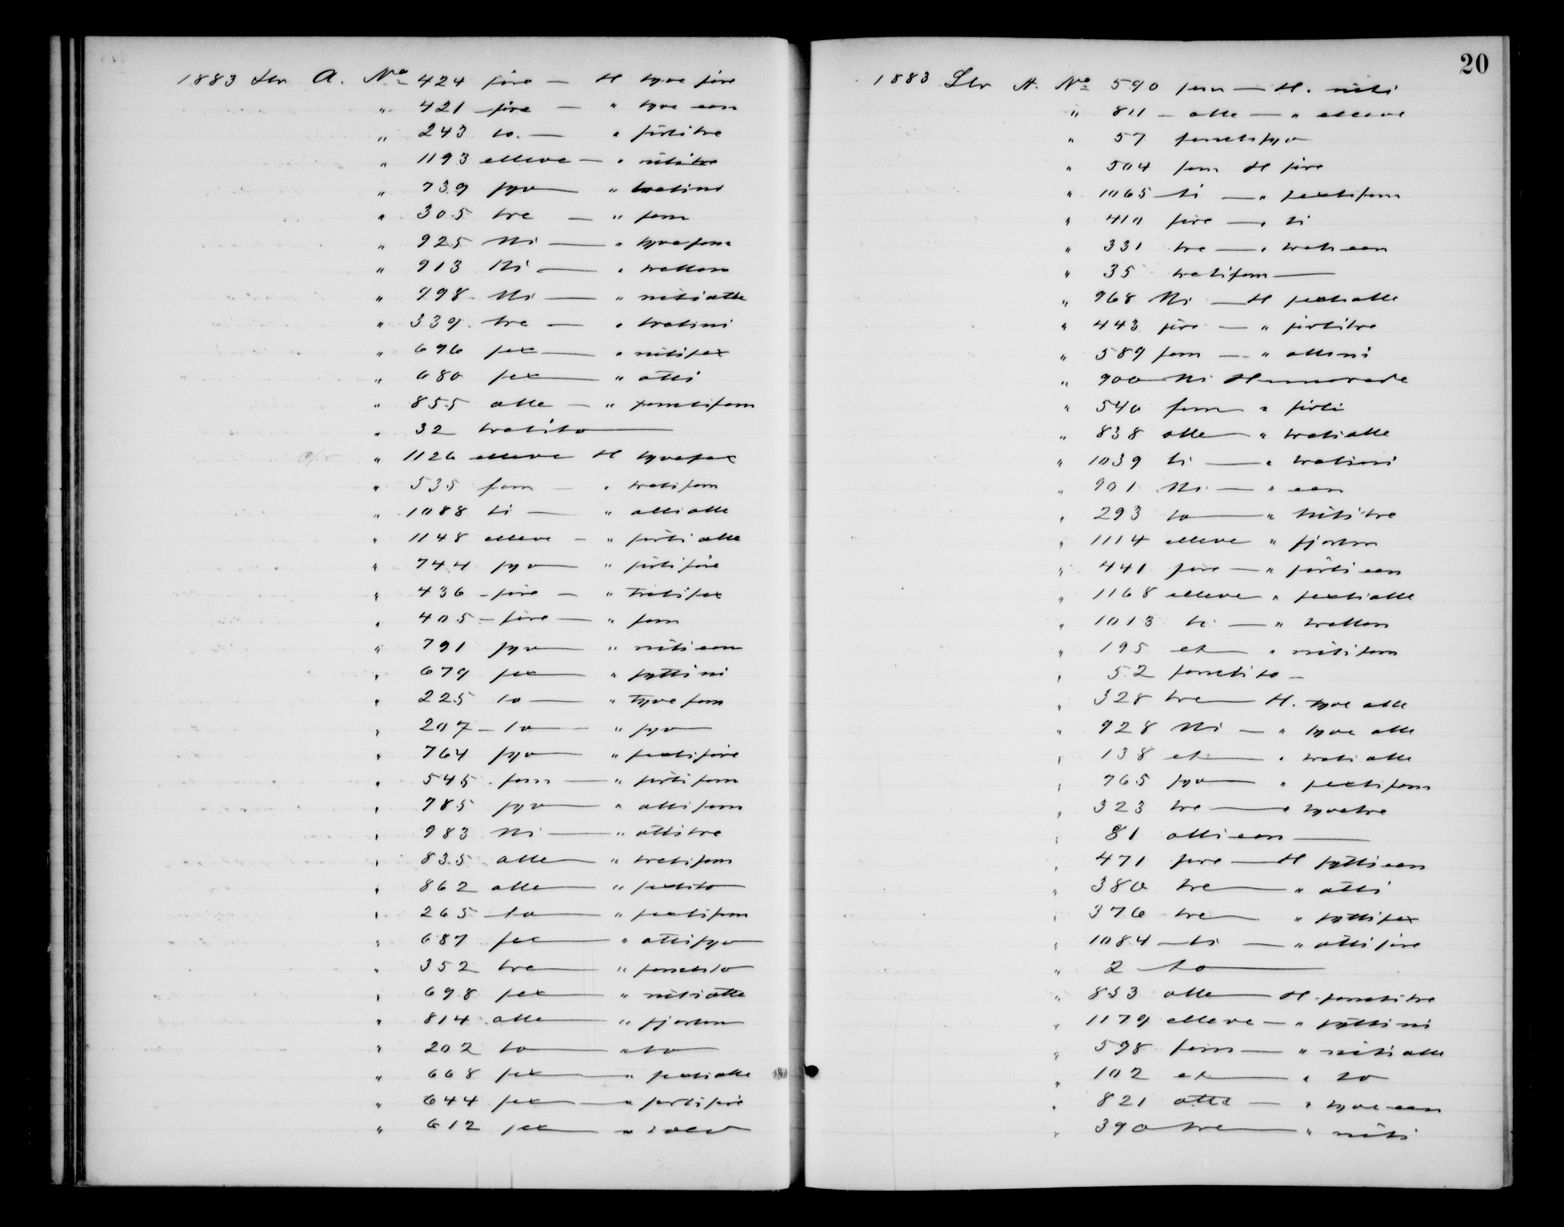 1883 Ltr A. No 424 fire — H tyve fire
" 421 fire — " tyve een
" 243 to — " förtitre
" 1193 elleve — " nititre
" 739 syv — " tretini
" 305 tre — " fem
" 925 Ni — " tyvefem
" 913 Ni — " tretten
" 998 Ni — " nitiotte
" 339 tre — " tretini
" 696 sex — " nitisex
" 680 sex — " otti
" 855 otte — " femtifem
" 32 tretito —
" 1126 elleve H tyvesex
" 535 fem — " tretifem
" 1088 ti — " ottiotte
" 1148 elleve — " förtiotte
" 744 syv — " förtifire
" 436 fire — " tretisex
" 405 fire — " fem
" 791 syv — " nitieen
" 679 sex — " syttini
" 225 to — " tyvefem
" 207 to — " syv
" 764 syv — " sextifire
" 545 fem — " förtifem
" 785 syv — " ottifem
" 983 Ni — " ottitre
" 835 otte — " tretifem
" 862 otte — " sextito
" 265 to — " sextifem
" 687 sex — " ottisyv
" 352 tre — " femtito
" 698 sex — " nitiotte
" 814 otte — " fjorten
" 202 to — " to
" 668 sex — " sextiotte
" 644 sex — " förtifire
" 612 sex — " tolv
20
1883 Ltr A. No 590 fem — H. niti
" 811 — otte — " elleve
" 57 femtisyv
" 504 fem H fire
" 1065 ti — " sextifem
" 410 fire — " ti
" 331 tre — " tretieen
" 35 tretifem —
" 968 Ni — H sextiotte
" 443 fire — " förtitre
" 589 fem — " ottini
" 900 Ni Hunnrede
" 540 fem " förti
" 838 otte — " tretiotte
" 1039 ti — " tretini
" 901 Ni — " een
" 293 to — " nititre
" 1114 elleve " fjorten
" 441 fire — " förtieen
" 1168 elleve " sextiotte
" 1013 ti — " tretten
" 195 et " nitifem
" 52 femtito —
" 328 tre — H. tyve otte
" 928 Ni — " tyve otte
" 138 et " tretiotte
" 765 syv — " sextifem
" 323 tre — " tyvetre
" 81 ottieen —
" 471 fire — H syttieen
" 380 tre — " otti
" 376 tre — " syttisex
" 1084 ti — " ottifire
" 2 to —
" 853 otte — H femtitre
" 1179 elleve — " syttini
" 598 fem — " nitiotte
" 102 et — " to
" 821 otte — " tyve een
" 390 tre — " niti